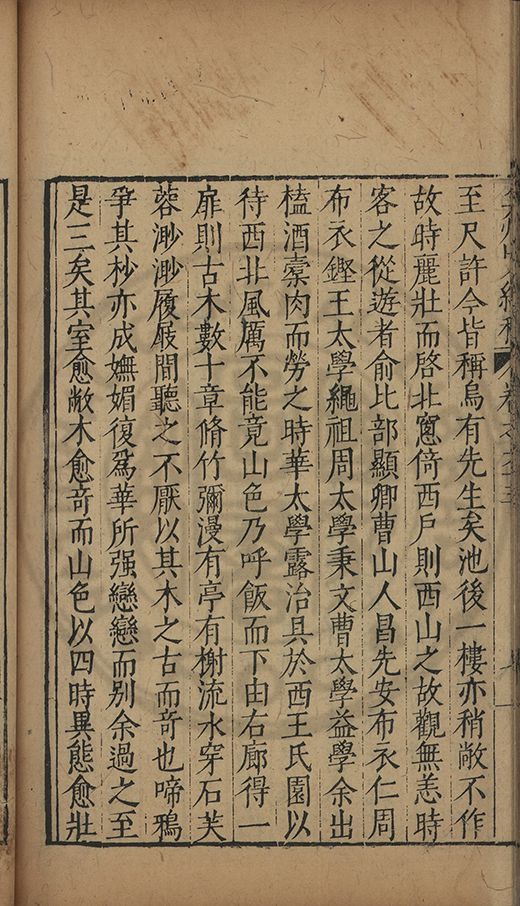 至尺許今皆稱烏有先生矣池後一樓亦稍敝不作
故時麗壯而啓北窻倚西戶則西山之故觀無恙時
客之從遊者俞比部顯卿曹山人昌先安布衣仁周
布衣鏗王太學繩祖周太學秉文曹太學益學余出
榼酒臠肉而勞之時華太學露治具於西王氏園以
待西北風厲不能竟山色乃呼飯而下由右廊得一
扉則古木數十章脩竹彌漫有亭有榭流水穿石芙
蓉渺渺履屐間聽之不厭以其木之古而奇也啼鴉
爭其杪亦成嫵媚復爲華所强戀戀而別余過之至
是三矣其室愈敝木愈奇而山色以四時異態愈壯